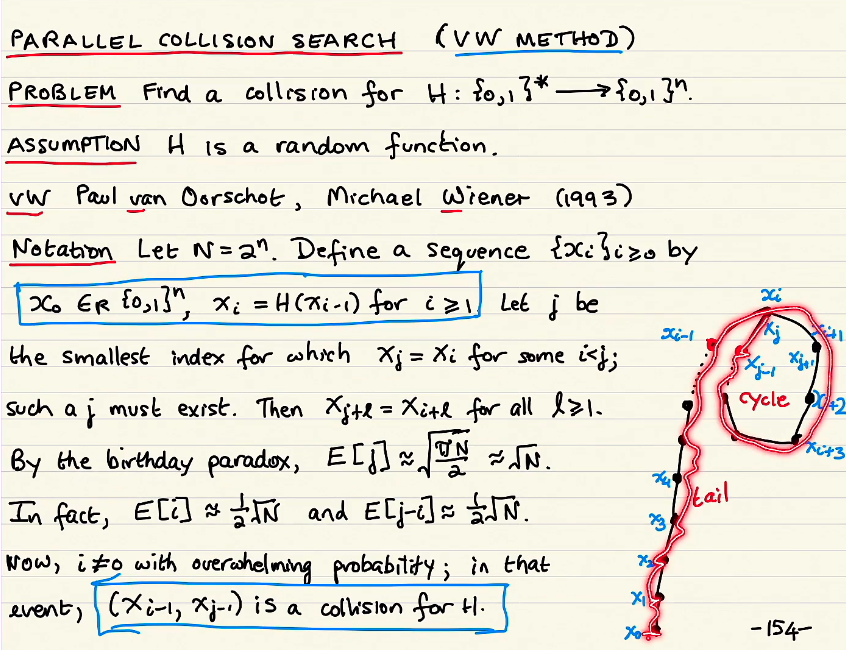 PARALLEL COLLISION SEARCH (VW METHOD)
PROBLEM Find a collision for H: {0,1}* ⟶ {0,1}ⁿ.
ASSUMPTION H is a random function.
VW Paul van Oorschot, Michael Wiener (1993)
Notation Let N = 2ⁿ. Define a sequence {xᵢ}ᵢ≥₀ by
x₀ ∈R {0,1}ⁿ, xᵢ = H(xᵢ₋₁) for i ≥ 1. Let j be
the smallest index for which xⱼ = xᵢ for some i<j;
such a j must exist. Then xⱼ₊ℓ = xᵢ₊ℓ for all ℓ≥1.
By the birthday paradox, E[j] ≈ √(πN/2) ≈ √N.
In fact, E[i] ≈ ½√N and E[j-i] ≈ ½√N.
Now, i≠0 with overwhelming probability; in that
event, (xᵢ₋₁, xⱼ₋₁) is a collision for H.
xᵢ
xᵢ₋₁
xⱼ
xᵢ₊₁
xⱼ₋₁
xⱼ₊₁
cycle
xᵢ₊₃
x₄
tail
x₃
x₂
x₁
x₀
-154-